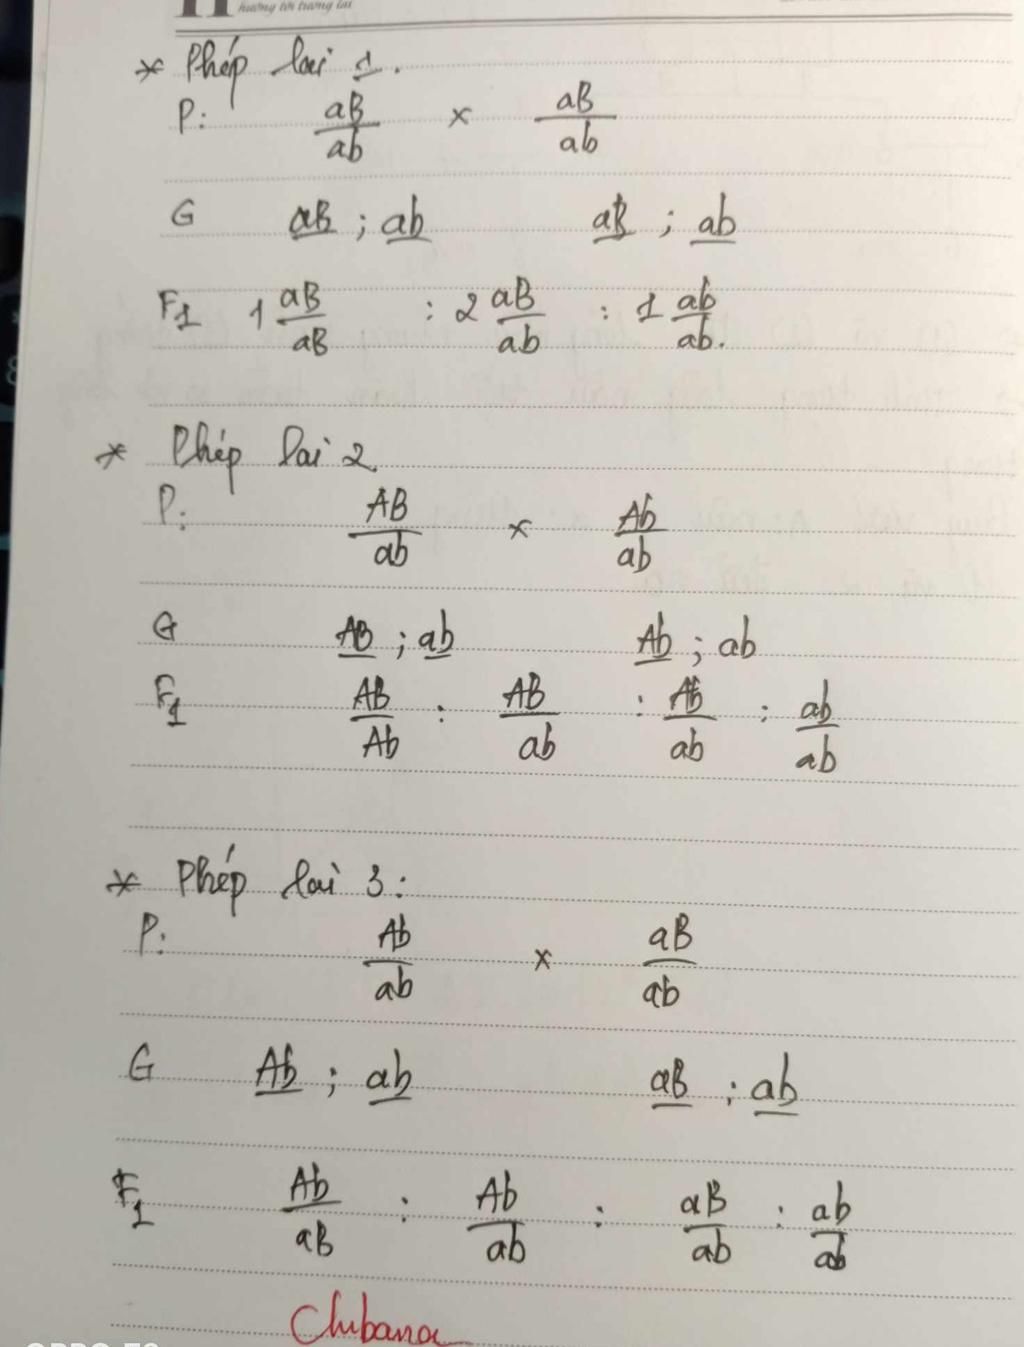 hướng tới tương lai
* Phép lai 1.
P: aB/ab × aB/ab
G aB ; ab aB ; ab
F1 1 aB/aB : 2 aB/ab : 1 ab/ab.
* Phép lai 2.
P: AB/ab × Ab/ab
G AB ; ab Ab ; ab
F1 AB/Ab : AB/ab : Ab/ab : ab/ab
* Phép lai 3:
P: Ab/ab × aB/ab
G Ab ; ab aB ; ab
F1 Ab/aB : Ab/ab : aB/ab : ab/ab